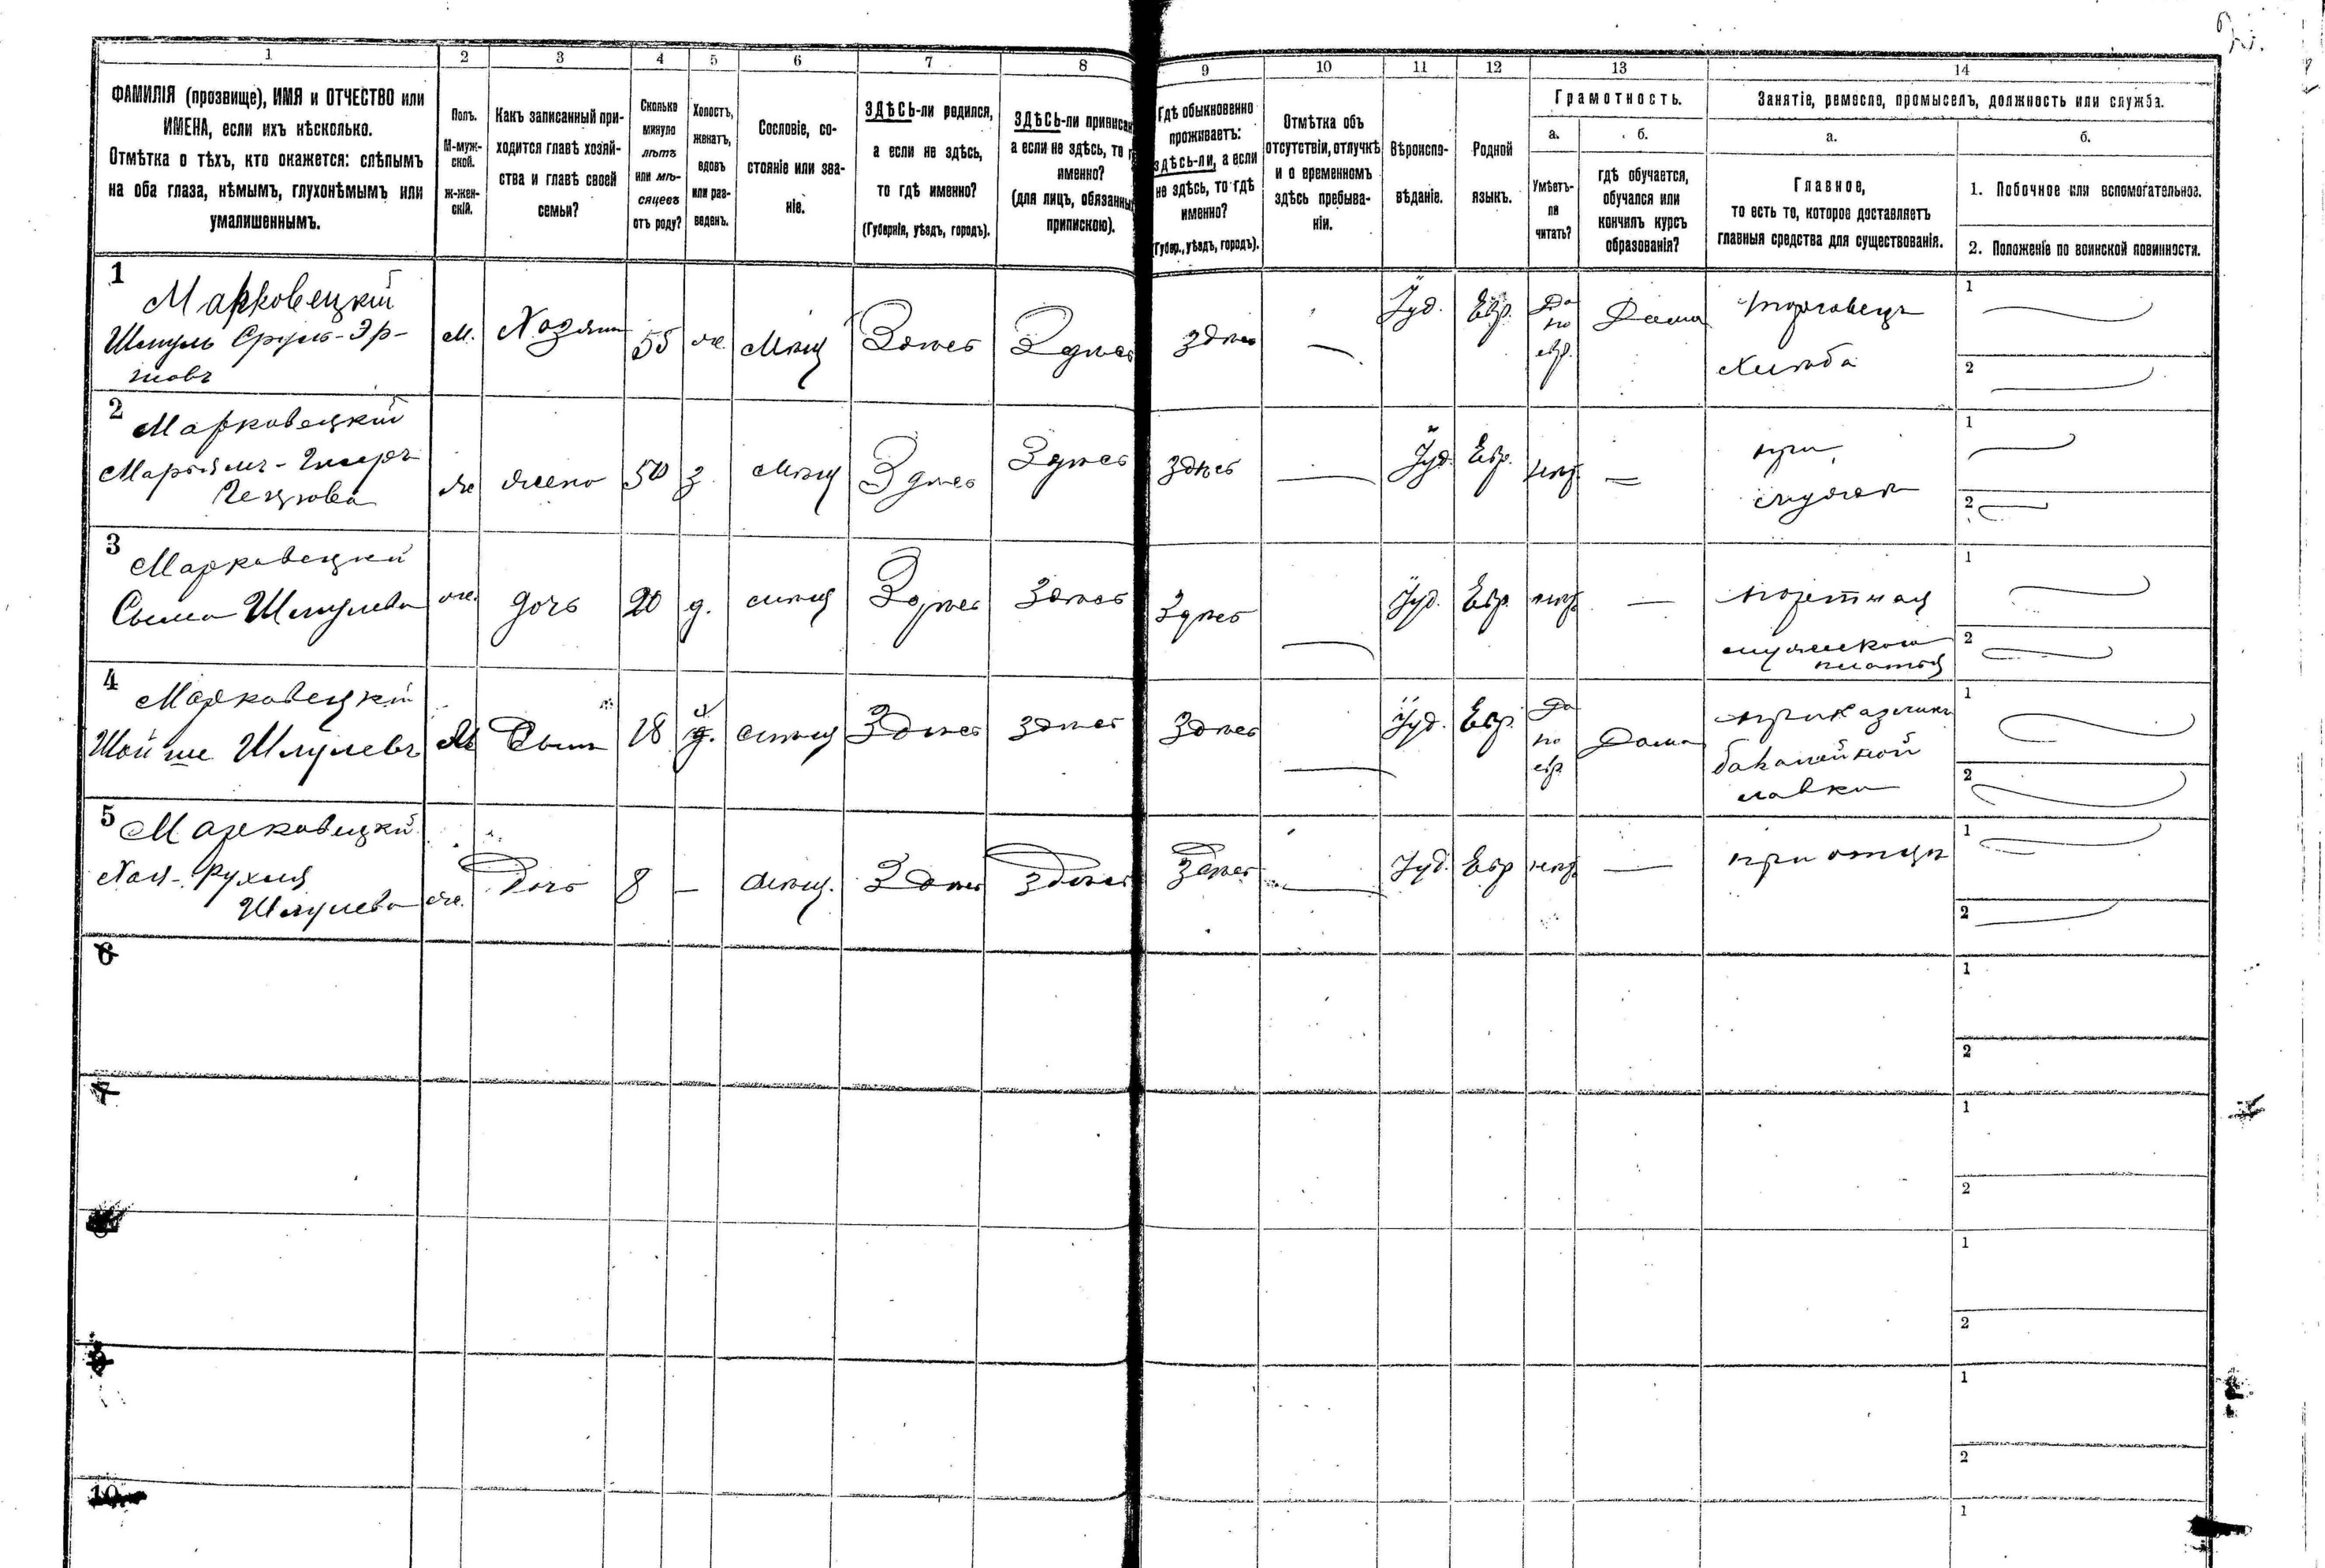 1 2 3 4 5 6 7 8 9 10 11 12 13 14
ФАМИЛІЯ (прозвище), ИМЯ и ОТЧЕСТВО или
ИМЕНА, если ихъ нѣсколько.
Отмѣтка о тѣхъ, кто окажется: слѣпымъ
на оба глаза, нѣмымъ, глухонѣмымъ или
умалишеннымъ.
Полъ.
М-муж-
ской.
Ж-жен-
скій.
Какъ записанный при-
ходится главѣ хозяй-
ства и главѣ своей
семьи?
Сколько
минуло
лѣтъ
или мѣ-
сяцевъ
отъ роду?
Холостъ,
женатъ,
вдовъ
или раз-
веденъ.
Сословіе, со-
стояніе или зва-
ніе.
ЗДѢСЬ-ли родился,
а если не здѣсь,
то гдѣ именно?
(Губернія, уѣздъ, городъ).
ЗДѢСЬ-ли приписан
а если не здѣсь, то г
именно?
(для лицъ, обязанны
припискою).
Гдѣ обыкновенно
проживаетъ:
здѣсь-ли, а если
не здѣсь, то гдѣ
именно?
(Губер., уѣздъ, городъ).
Отмѣтка объ
отсутствіи, отлучкѣ
и о временномъ
здѣсь пребыва-
ніи.
Вѣроиспо-
вѣданіе.
Родной
языкъ.
Грамотность.
а.
Умѣетъ-
ли
читать?
б.
гдѣ обучается,
обучался или
кончилъ курсъ
образованія?
Занятіе, ремесло, промыселъ, должность или служба.
а.
Главное,
то есть то, которое доставляетъ
главныя средства для существованія.
б.
1. Побочное или вспомогательное.
2. Положеніе по воинской повинности.
1
Марковецкій
Шмуль Сруль-Эр-
ковъ
М. Хозяин 55 ж. Мѣщ Здѣсь Здѣсь здѣсь — Іуд. Евр.
Да
по
евр.
Дома
торговецъ
хлѣба
1
2
2
Марковецкій
ж жена 50 з. Мѣщ Здѣсь Здѣсь здѣсь — Іуд. Евр. нѣт. —
при
мужѣ
1
2
3
Марковецкій
Сыма Шмулева
ж. дочь 20 д. мѣщ Здѣсь Здѣсь Здѣсь — Іуд. Евр. нѣт —
портная
мужскаго
платья
1
2
4
Марковецкій
Мойше Шмулевъ
М Сынъ 18 мѣщ Здѣсь здѣсь Здѣсь — Іуд. Евр.
Да
по
евр
Дома
приказчикъ
бакалейной
лавки
1
2
5
Марковецкій
Хая-Рухля
Шмулева
ж. Дочь 8 — мѣщ. Здѣсь Здѣсь Здѣсь — Іуд. Евр нѣт. —
при отцѣ
1
2
6
1
2
7
1
2
1
2
9
1
2
10
1